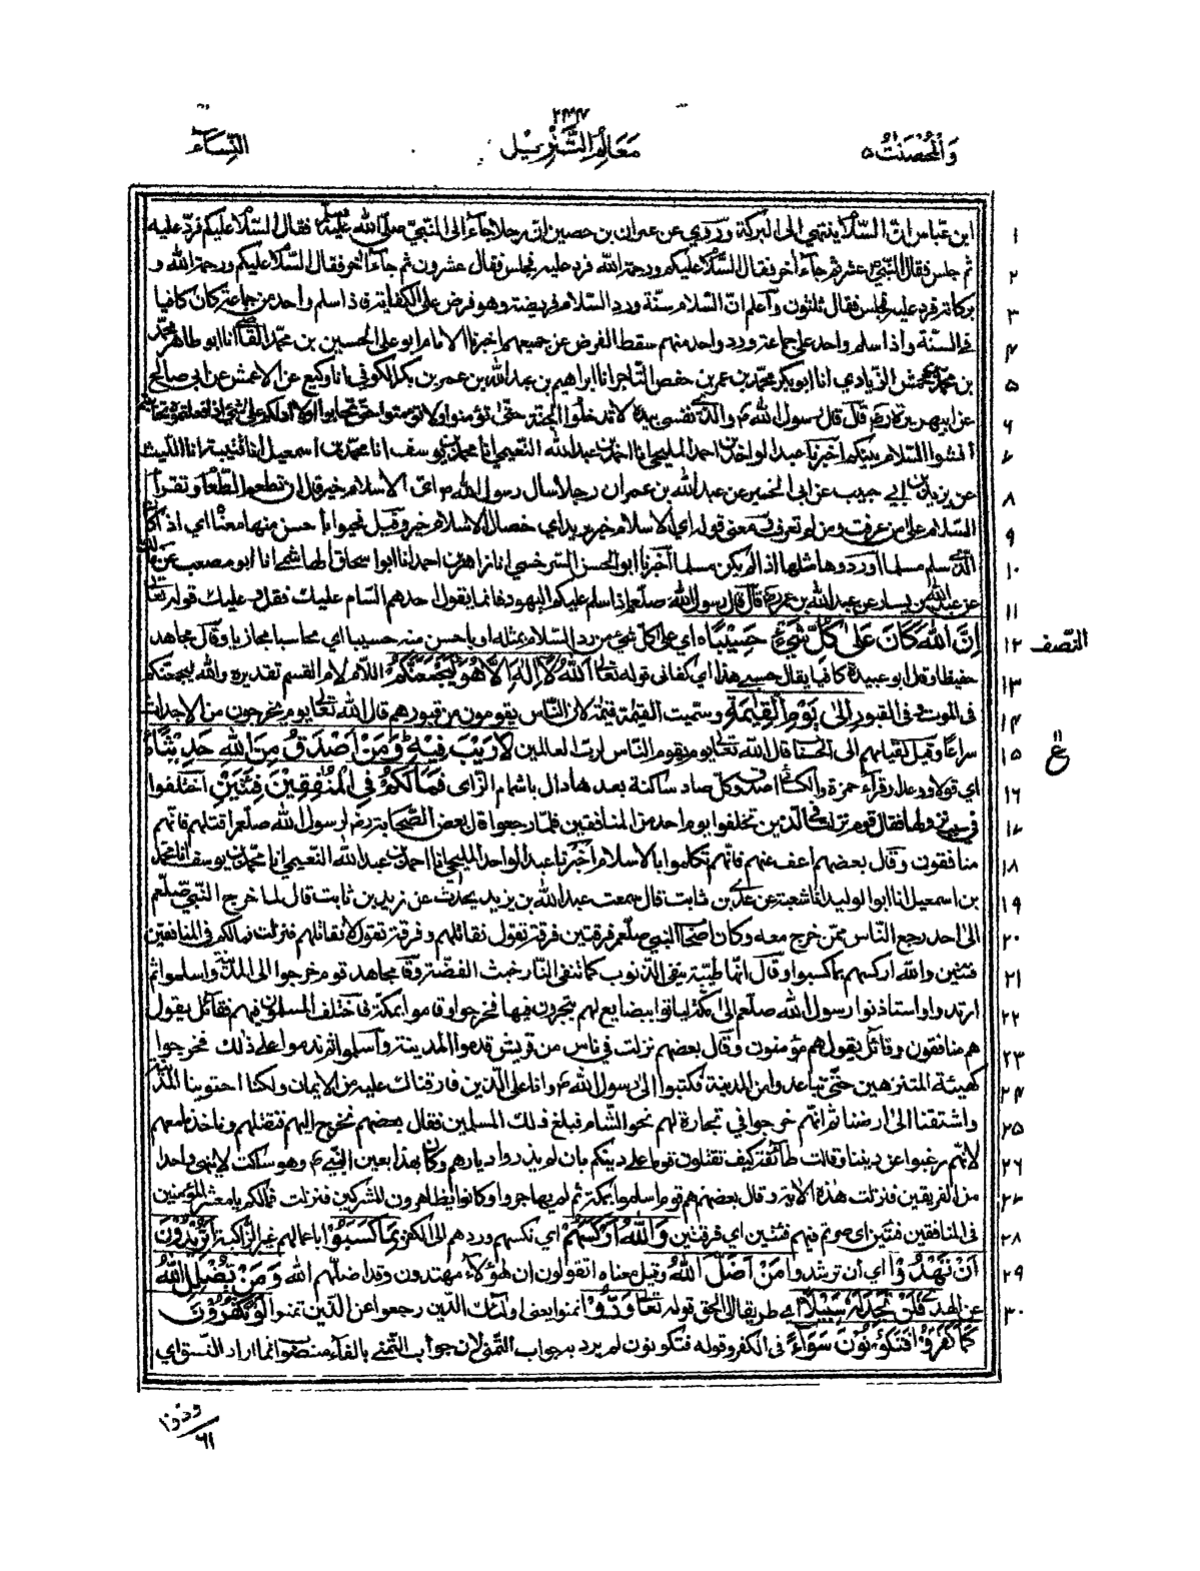 والمحصنت ٥
معالم التنزيل
النساء
١ ابن عباس ان السلام ينتهي الى البركة وروي عن عمران بن حصين ان رجلا جاء الى النبي صلى الله عليه وسلم فقال السلام عليكم فرد عليه
٢ ثم جلس فقال النبي عشر ثم جاء اخر فقال السلام عليكم ورحمة الله فرد عليه فجلس فقال عشرون ثم جاء اخر فقال السلام عليكم ورحمة الله و
٣ بركاته فرد عليه فجلس فقال ثلثون واعلم ان السلام سنة ورد السلام فريضة وهو فرض على الكفاية فاذا سلم واحد من جماعة كان كافيا
٤ في السنة واذا سلم واحد على جماعة ورد واحد منهم سقط الفرض عن جميعهم اخبرنا الامام ابو علي الحسين بن محمد القاضي انا ابو طاهر محمد
٥ بن محمد بن محمش الزيادي انا ابو بكر محمد بن عمر بن حفص التاجر انا ابراهيم بن عبد الله بن عمر بن بكر الكوفي انا وكيع عن الاعمش عن ابي صالح
٦ عن ابي هريرة رض قال قال رسول الله والذي نفسي بيده لا تدخلوا الجنة حتى تؤمنوا ولا تؤمنوا حتى تحابوا الا ادلكم على شئ اذا فعلتموه تحاببتم
٧ افشوا السلام بينكم اخبرنا عبد الواحد بن احمد المليحي انا احمد بن عبد الله النعيمي انا محمد بن يوسف انا محمد بن اسمعيل انا قتيبة انا الليث
٨ عن يزيد بن ابي حبيب عن ابي الخير عن عبد الله بن عمر ان رجلا سال رسول الله اي الاسلام خير قال ان تطعم الطعام وتقرأ
٩ السلام على من عرفت ومن لم تعرف ومعنى قوله اي الاسلام خير يريد اي خصال الاسلام خير وقيل فحيوا باحسن منها معناه اي اذا كان
١٠ الذي سلم مسلما او ردوها مثلها اذا لم يكن مسلما اخبرنا ابو الحسن السرخسي انا زاهر بن احمد انا ابو اسحاق الهاشمي انا ابو مصعب عن مالك
١١ عن عبد الله بن دينار عن عبد الله بن عمر قال قال رسول الله صلعم اذا سلم عليكم اليهود فانما يقول احدهم السام عليك فقل وعليك قوله تعالى
١٢ ان الله كان على كل شيء حسيبا ٥ اي على كل شئ من رد السلام بمثله او باحسن منه حسيبا اي محاسبا مجازيا وقال مجاهد
النصف
١٣ حفيظا وقال ابو عبيدة كافيا يقال حسبي هذا اي كفاني قوله تعالى الله لا اله الا هو ليجمعنكم اللام لام القسم تقديره والله ليجمعنكم
١٤ في الموت وفي القبور الى يوم القيمة وسميت القيمة قيمة لان الناس يقومون من قبورهم قال الله تعالى يوم يخرجون من الاجداث
١٥ سراعا وقيل لقيامهم الى الحساب قال الله تعالى يوم يقوم الناس لرب العالمين لا ريب فيه ومن اصدق من الله حديثا ٥
ع
١٦ اي قولا ووعدا وقرأ حمزة والكسائي اصدق وكل صاد ساكنة بعدها دال باشمام الزاي فما لكم في المنفقين فئتين اختلفوا
١٧ في سبب نزولها فقال قوم نزلت في الذين تخلفوا يوم احد من المنافقين فلما رجعوا قال بعض الصحابة رض لرسول الله صلعم اقتلهم فانهم
١٨ منافقون وقال بعضهم اعف عنهم فانهم تكلموا بالاسلام اخبرنا عبد الواحد المليحي انا احمد بن عبد الله النعيمي انا محمد بن يوسف انا محمد
١٩ بن اسمعيل انا ابو الوليد انا شعبة عن عدي بن ثابت قال سمعت عبد الله بن يزيد يحدث عن زيد بن ثابت قال لما خرج النبي صلعم
٢٠ الى احد رجع الناس ممن خرج معه وكان اصحاب النبي صلعم فرقتين فرقة تقول نقاتلهم وفرقة تقول لا نقاتلهم فنزلت فمالكم في المنافقين
٢١ فئتين والله اركسهم بما كسبوا وقال انها طيبة تنفي الذنوب كما تنفي النار خبث الفضة وقال مجاهد قوم خرجوا الى المدينة واسلموا ثم
٢٢ ارتدوا واستاذنوا رسول الله صلعم الى مكة لياتوا ببضايع لهم يتجرون فيها فخرجوا وقاموا بمكة فاختلف المسلمون فيهم فقائل يقول
٢٣ هم منافقون وقائل يقول هم مؤمنون وقال بعضهم نزلت في ناس من قريش قدموا المدينة واسلموا ثم ندموا على ذلك فخرجوا
٢٤ كهيئة المتنزهين حتى تباعدوا من المدينة فكتبوا الى رسول الله انا على الذين فارقناك عليه من الايمان ولكنا اجتوينا المدينة
٢٥ واشتقنا الى ارضنا ثم انهم خرجوا في تجارة لهم نحو الشام فبلغ ذلك المسلمين فقال بعضهم نخرج اليهم فنقتلهم وناخذ ما معهم
٢٦ لانهم رغبوا عن ديننا وقالت طائفة كيف تقتلون قوما على دينكم بان لم يذروا ديارهم وكان هذا بعين النبي وهو ساكت لا ينهى واحدا
٢٧ من الفريقين فنزلت هذه الاية وقال بعضهم هم قوم اسلموا بمكة ثم لم يهاجروا وكانوا يظاهرون للمشركين فنزلت فمالكم يا معشر المؤمنين
٢٨ في المنافقين فئتين اي صرتم فيهم فئتين اي فرقتين والله اركسهم اي نكسهم وردهم الى الكفر بما كسبوا باعمالهم غير الزاكية اتريدون
٢٩ ان تهدوا اي ان ترشدوا من اضل الله وقيل معناه اتقولون ان هؤلاء مهتدون وقد اضلهم الله ومن يضلل الله
٣٠ عن الهدى فلن تجد له سبيلا اي طريقا الى الحق قوله تعالى ودوا تمنوا يعني اولئك الذين رجعوا عن الدين تمنوا لو تكفرون
كما كفروا فتكونون سواء في الكفر وقوله فتكونون لم يرد به جواب التمني لان جواب التمني بالفاء منصوب انما اراد النسق اي